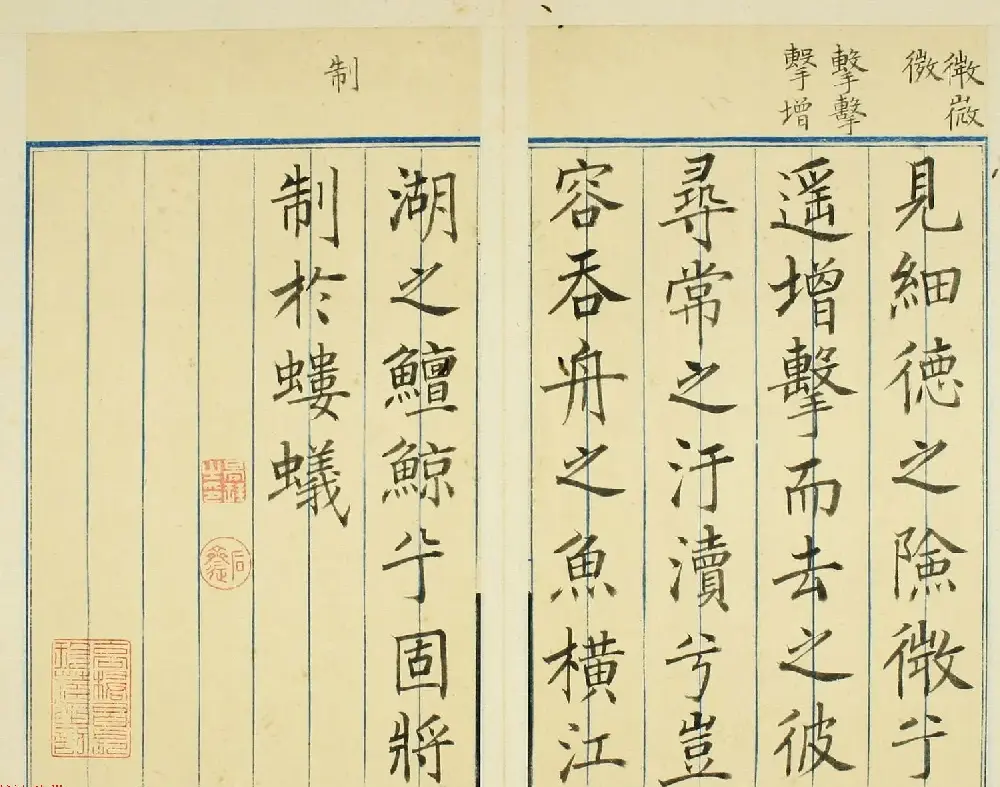 微嶶
微
擊擊
擊增
見細徳之險微兮
遥增擊而去之彼
尋常之汙瀆兮豈
容吞舟之魚橫江
制
湖之鱣鯨兮固將
制於螻蟻